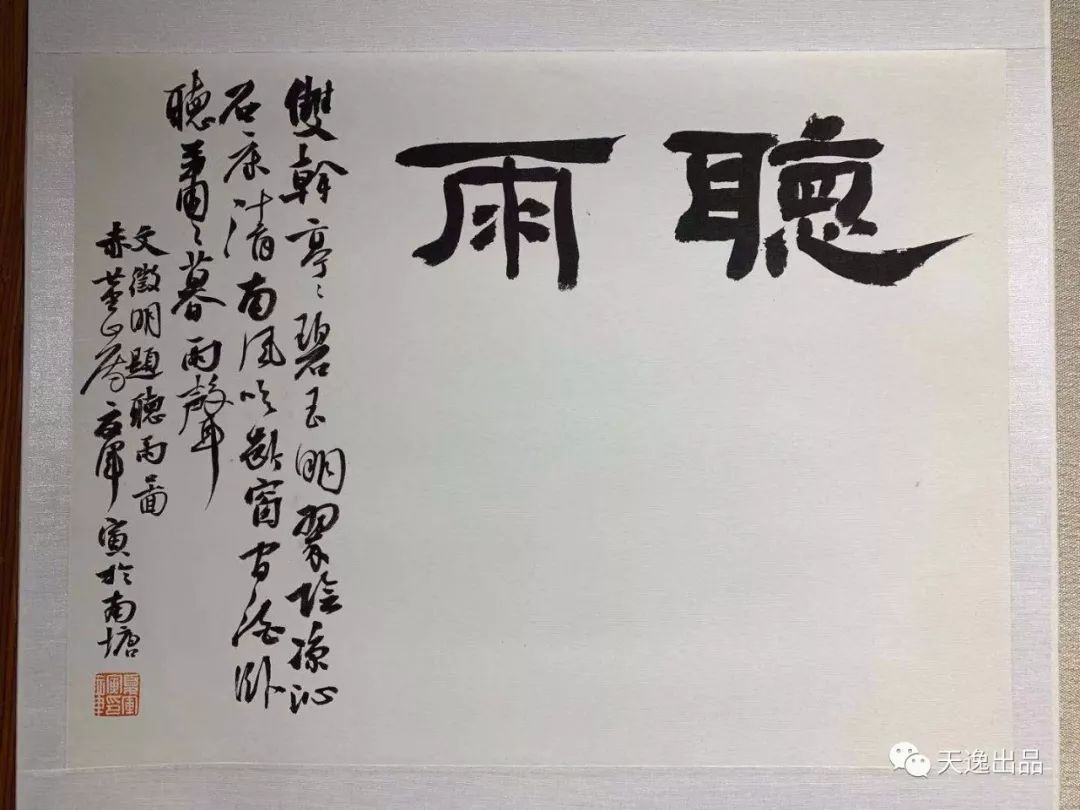 聽雨
雙幹亭〻碧玉明翠陰涼沁
石床清南風吹斷窗間酒臥
聽蕭〻暮雨聲
文徵明題聽雨圖
赤堇山房夏軍寅於南塘
天逸出品